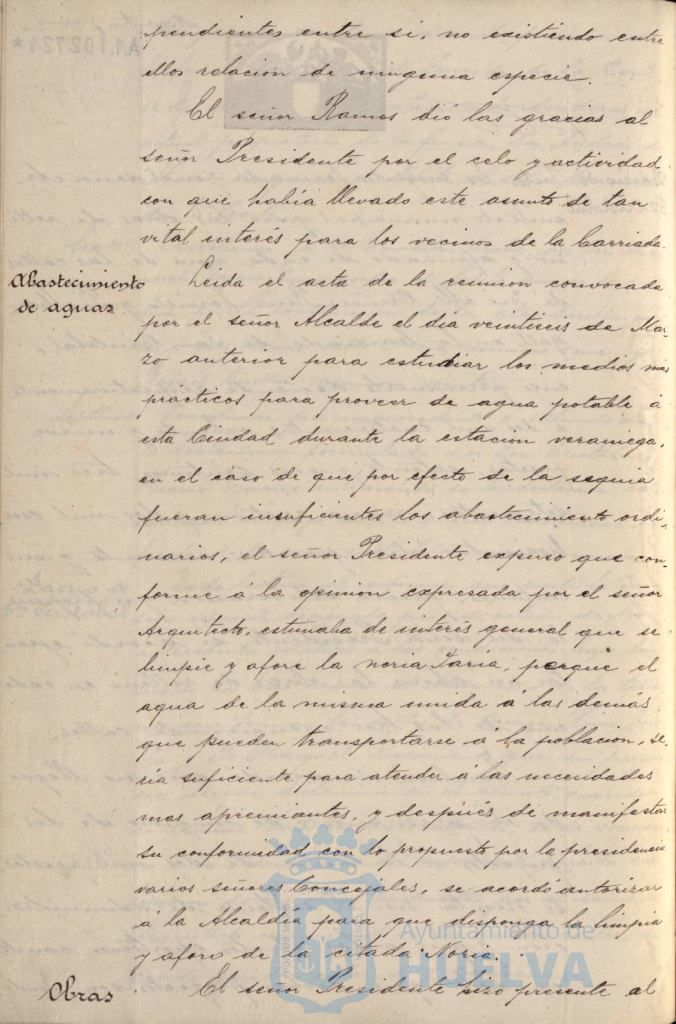 pendientes entre si, no existiendo entre
ellos relación de ninguna especie.
El señor Ramos dió las gracias al
señor Presidente por el celo y actividad
con que había llevado este asunto de tan
vital interés para los vecinos de la barriada.
Abastecimiento
de aguas
Leida el acta de la reunion convocada
por el señor Alcalde el día veintiseis de Mar-
zo anterior para estudiar los medios mas
prácticos para proveer de agua potable á
esta Ciudad durante la estación veraniega,
en el caso de que por efecto de la sequia
fueran insuficientes los abastecimiento ordi-
narios, el señor Presidente expuso que con-
forme á la opinion expresada por el señor
Arquitecto, estimaba de interés general que se
limpie y afore la noria; porque el
agua de la misma unida á las demás
que pueden transportarse á la población, se-
ría suficiente para atender á las necesidades
mas apremiantes, y después de manifestar
su conformidad con lo propuesto por la presidencia
varios señores Concejales, se acordó autorizar
á la Alcaldía para que disponga la limpia
y aforo de la citada Noria.
Obras
El señor Presidente hizo presente al
Ayuntamiento de
HUELVA